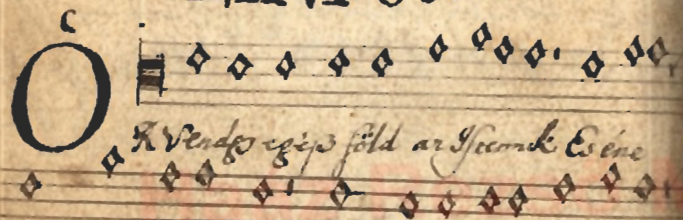 Ó
RVendgy egész föld az Istennek Es éne